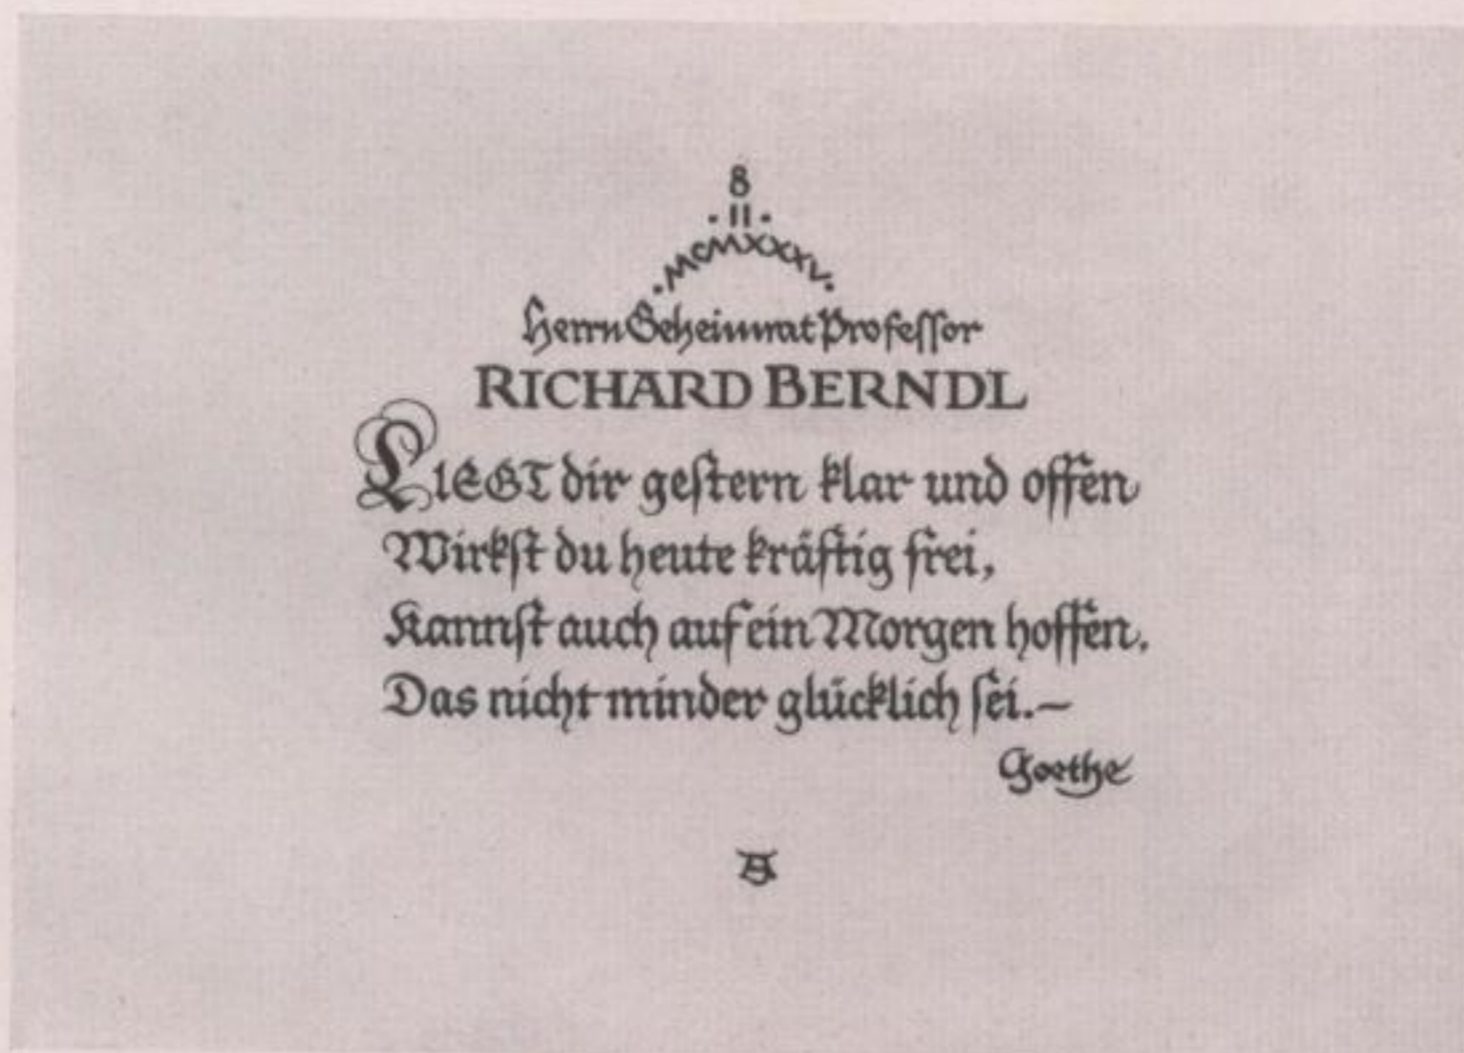 8
·II·
·MCMXXXV·
Herrn Geheimrat Professor
RICHARD BERNDL
LIEGT dir gestern klar und offen
Wirkst du heute kräftig frei,
Kannst auch auf ein Morgen hoffen,
Das nicht minder glücklich sei.—
Goethe